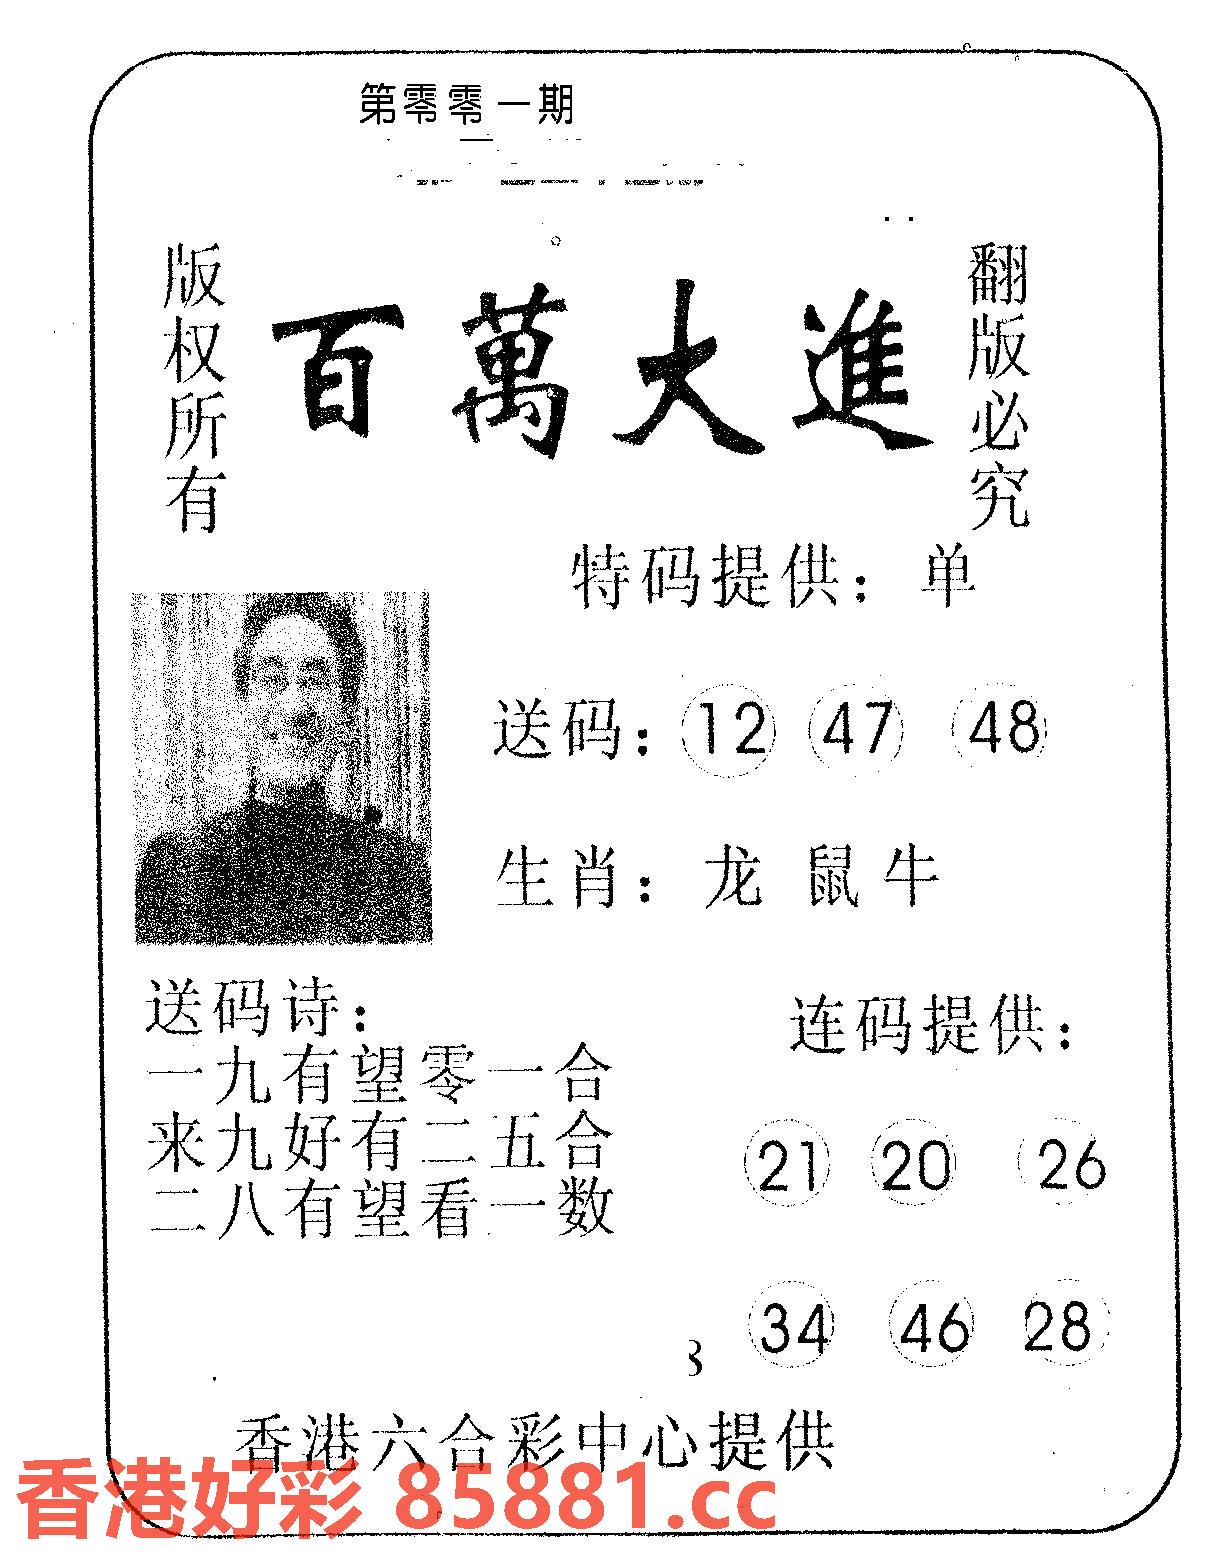 第零零一期
版权所有
百萬大進
翻版必究
特码提供：单
送码：12 47 48
生肖：龙 鼠 牛
送码诗：
一九有望零一合
来九好有二五合
二八有望看一数
连码提供：
21 20 26
34 46 28
香港六合彩中心提供
香港好彩 85881.cc